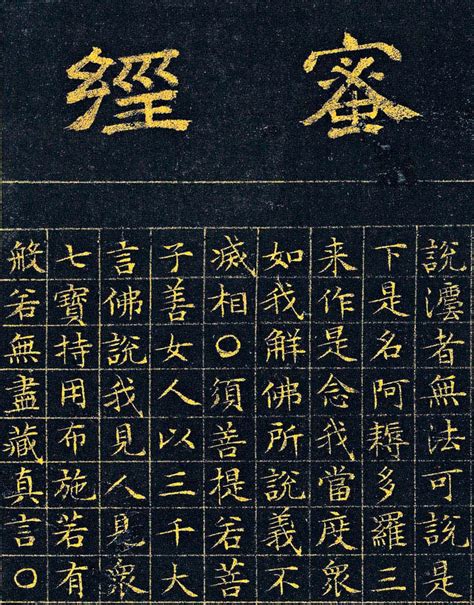 蜜經
說灋者無法可說是
下是名阿耨多羅三
来作是念我當度衆
如我解佛所說義不
滅相○須菩提若菩
子善女人以三千大
言佛說我見人見衆
七寶持用布施若有
般若無盡藏真言○